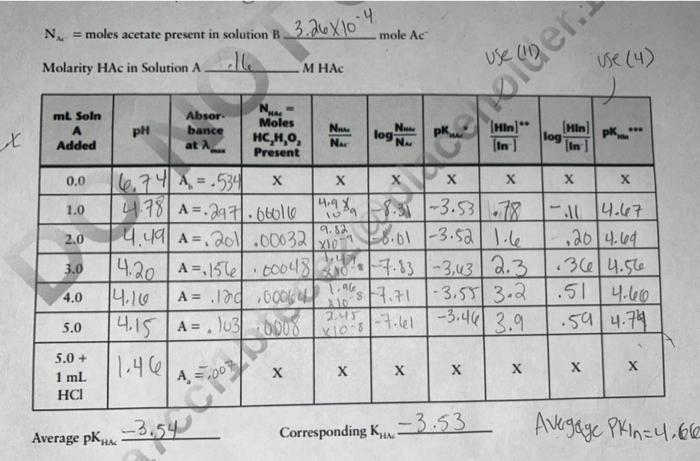 N_Ac = moles acetate present in solution B 3.26 X10^-4 mole Ac^-
use (11) use (4)
Molarity HAc in Solution A .16 M HAc
mL Soln A Added pH Absorbance at λmax N_HAc = Moles HC₂H₃O₂ Present N_HAc/N_Ac log N_HAc/N_Ac pK_HAc* [HIn]**/[In^-] log [HIn]/[In^-] pK_HIn***
0.0 6.74 A_b = .534 X X X X X X X
1.0 4.78 A = .297 .00016 -3.53 .78 -.11 4.67
2.0 4.49 A = .201 .00032 9.82 X10 -8.01 -3.52 1.6 .20 4.69
3.0 4.20 A = .156 .00048 -7.83 -3.63 2.3 .36 4.56
4.0 4.16 A = .00064 1.96 X10^-8 -7.71 -3.55 3.2 .51 4.66
5.0 4.15 A = .103 .0008 2.45 X10^-8 -7.61 -3.46 3.9 .59 4.74
5.0 + 1 mL HCl 1.46 A_a = .007 X X X X X X X
Average pK_HAc -3.54 Corresponding K_HAc -3.53 Average PKIn=4.66